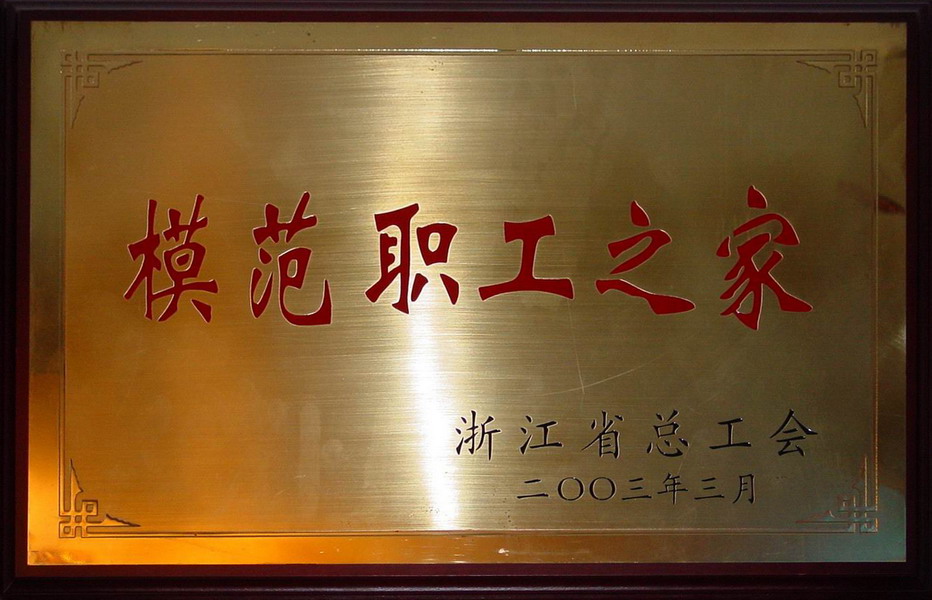 模范职工之家
浙江省总工会
二〇〇三年三月